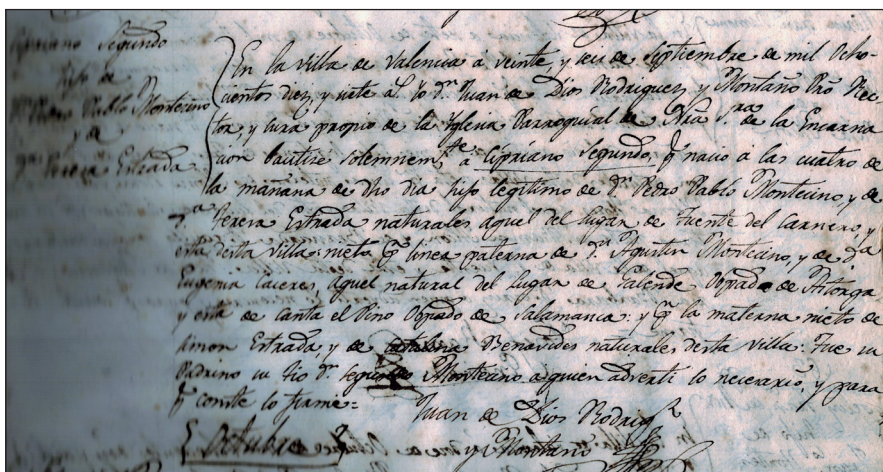 Cipriano Segundo
hijo de
Dn. Pedro Pablo Montecino
y de
Da. Teresa Estrada
En la villa de Valencia à veinte, y seis de Septiembre de mil Ocho-
cientos diez, y siete à. Yo Dn. Juan de Dios Rodriguez, y Montaño Pro. Rec-
tor, y cura propio de la Yglesia Parroquial de Nra Sra. de la Encarna
cion bautize solemnemte. a Cipriano Segundo, q nacio à las cuatro de
la mañana de dho dia hijo legitimo de Dn. Pedro Pablo Montecino, y de
Da. Teresa Estrada naturales aquel del lugar de Fuente del Carnero, y
esta desta villa: nieto p linea paterna de Dn. Agustin Montecino, y de Da
Eugenia Caceres, aquel natural del lugar de Galende Obpado de Astorga
y esta de Canta el Pino Obpado de Salamanca: y p la materna nieto de
Ramon Estrada, y de Benavides naturales desta villa: Fue su
Padrino su tio Dn. Segundo Montecino a quien adverti lo necesario, y para
q conste lo firme=
Juan de Dios Rodrigz
y Montaño
Octubre